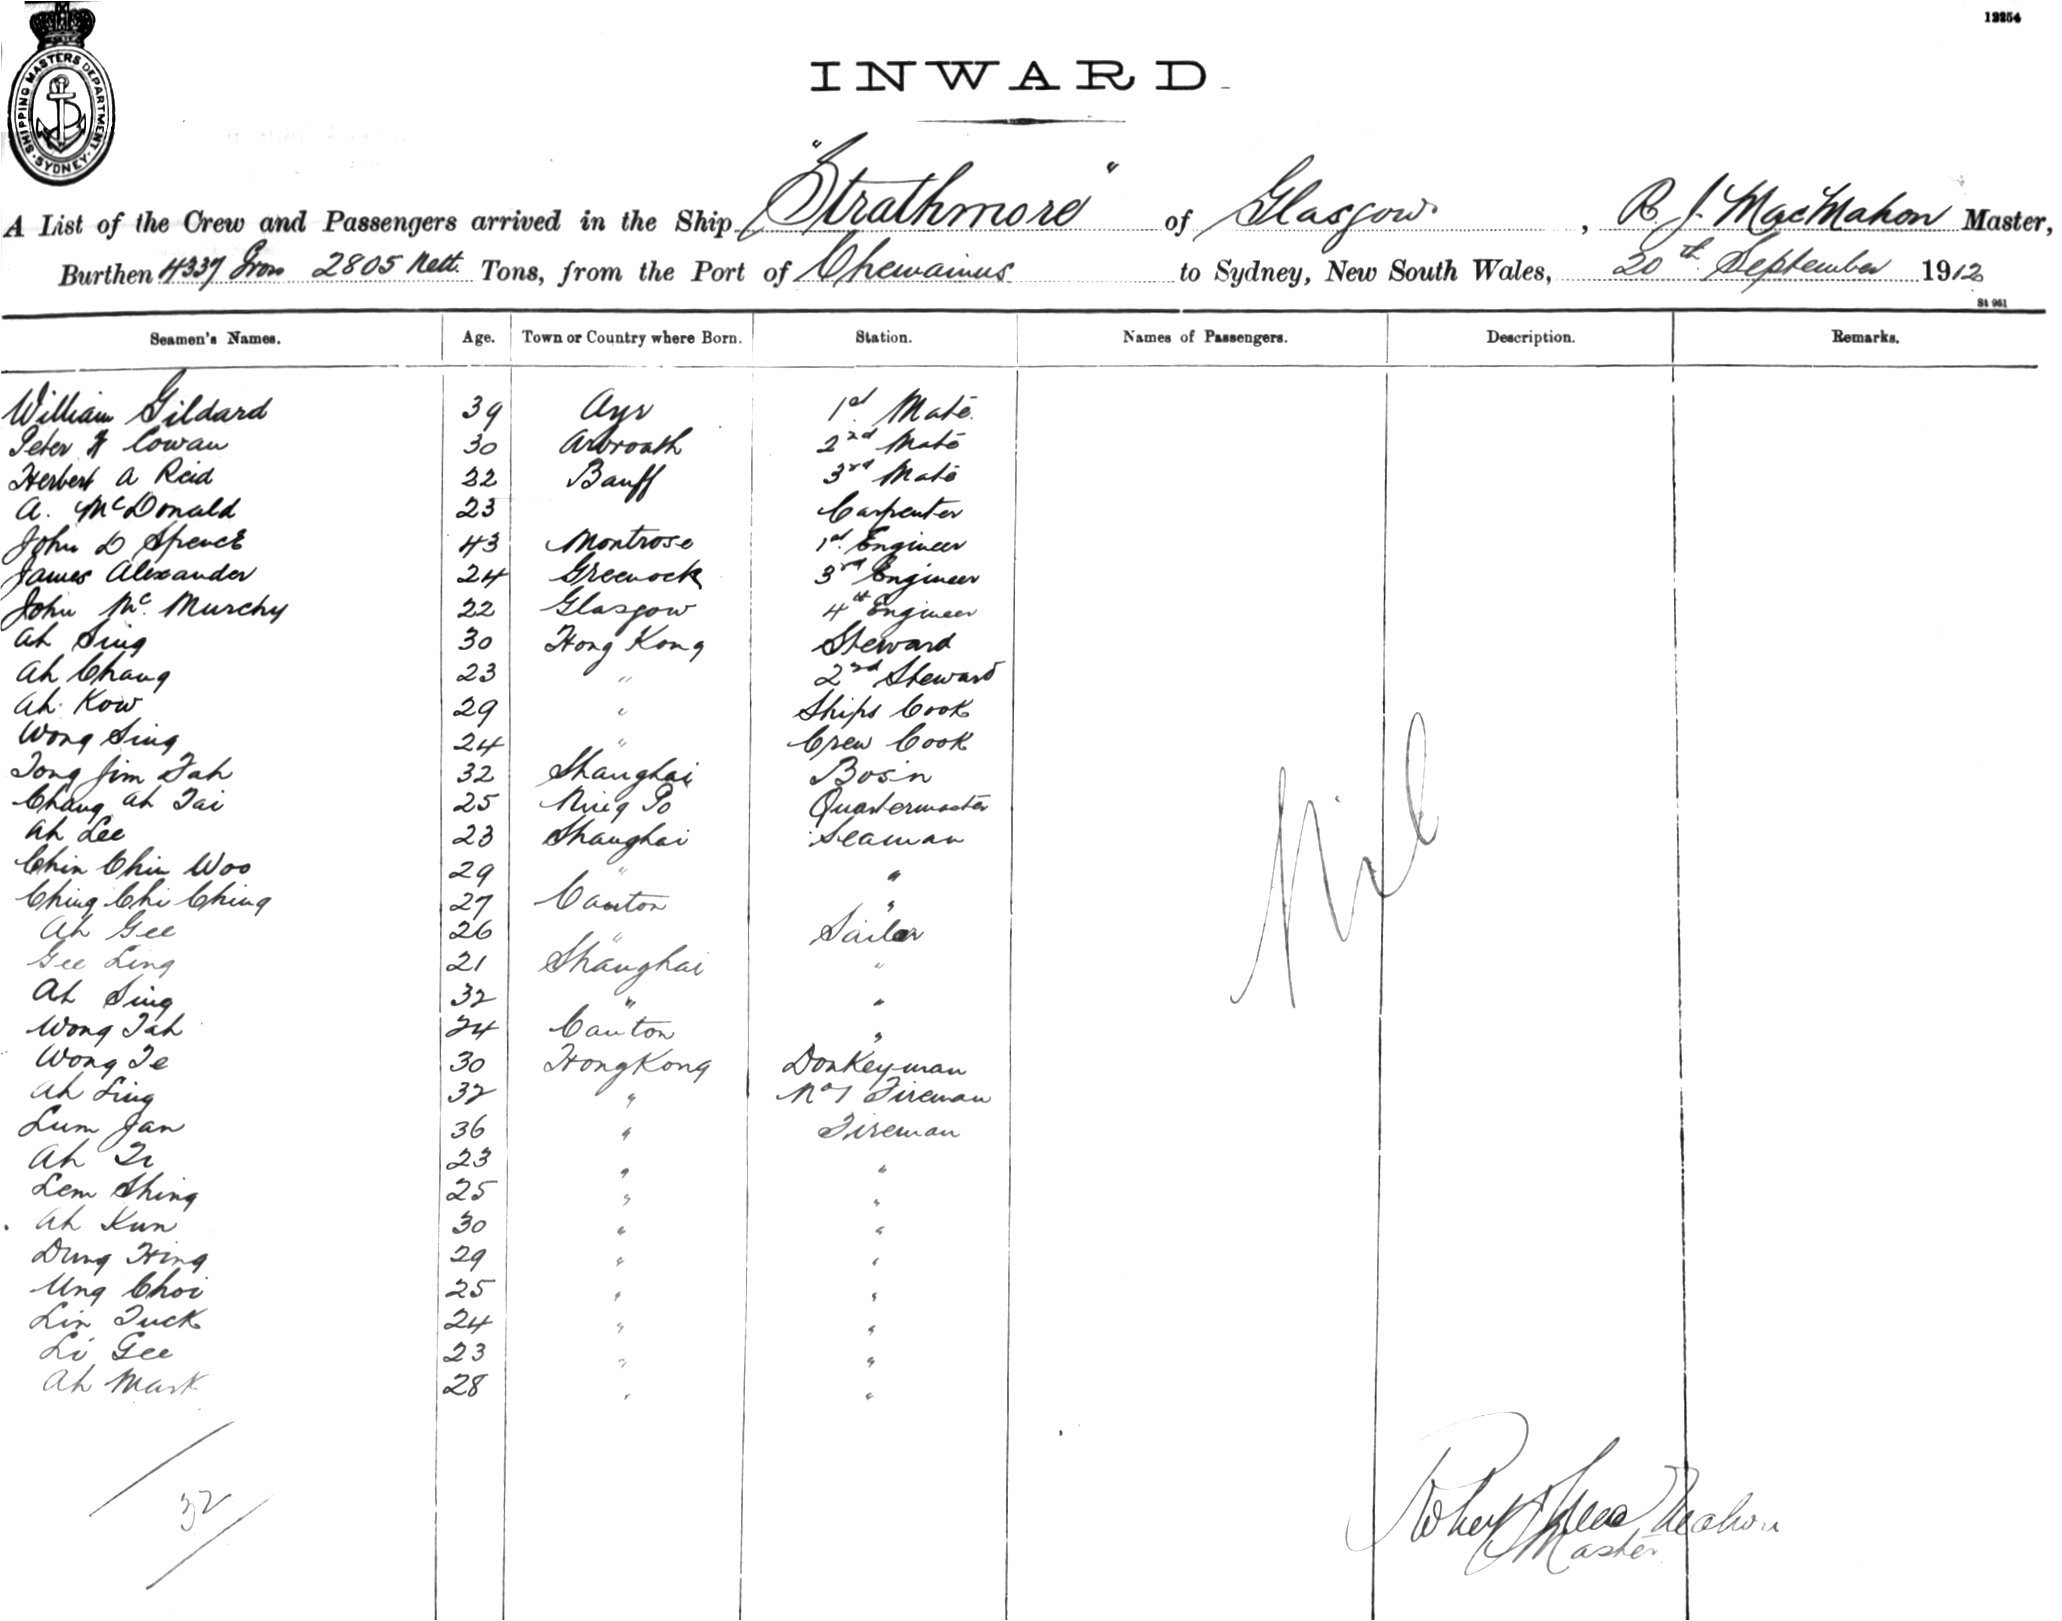 12254
SHIPPING MASTERS DEPARTMENT. SYDNEY.
INWARD.
A List of the Crew and Passengers arrived in the Ship "Strathmore" of Glasgow, R. J. MacMahon Master,
Burthen 4337 Gross 2805 Nett. Tons, from the Port of Chemainus to Sydney, New South Wales, 20th September 1912
St 961
Seamen's Names. Age. Town or Country where Born. Station. Names of Passengers. Description. Remarks.
William Gildard 39 Ayr 1st Mate.
Peter Cowan 30 Arbroath 2nd Mate
Herbert A Reid 22 Banff 3rd Mate
A. McDonald 23 Carpenter
John D Spence 43 Montrose 1st Engineer
James Alexander 24 Greenock 3rd Engineer
John Mc Murchy 22 Glasgow 4th Engineer
Ah Sing 30 Hong Kong Steward
Ah Chang 23 " 2nd Steward
Ah Kow 29 " Ships Cook
Wong Sing 24 " Crew Cook
Tong Jim Tah 32 Shanghai Bosin
Chang Ah Tai 25 Ning Po Quartermaster
Ah Lee 23 Shanghai Seaman
Chin Chin Woo 29 " "
Ching Chi Ching 27 Canton "
Ah Gee 26 " Sailor
Gee Ling 21 Shanghai "
Ah Sing 32 " "
Wong Tah 24 Canton "
Wong Te 30 HongKong Donkeyman
Ah Ling 32 " No 1 Fireman
Lum Jan 36 " Fireman
Ah Ti 23 " "
Lem Shing 25 " "
Ah Kun 30 " "
Dung Hing 29 " "
Ung Choi 25 " "
Lin Tuck 24 " "
Li Gee 23 " "
Ah Mark 28 " "
Nil
32
Robert J MacMahon
Master